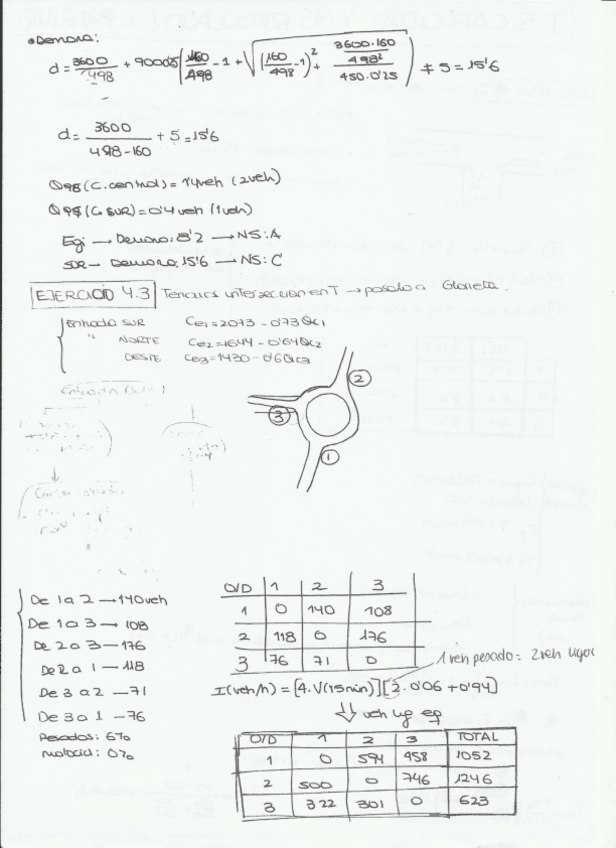 • Demora:
d = 3600/498 + 900·0'25 (160/498 - 1 + √((160/498 - 1)² + (3600·160/498²)/(450·0'25))) + 5 = 15'6
d = 3600/(498-160) + 5 = 15'6
Q95 (C. central) = 1'4 veh (2veh)
Q95 (C. SUR) = 0'4 veh (1veh)
Eg: → Demora: 8'2 → NS: A
SUR → Demora: 15'6 → NS: C
EJERCICIO 4.3 Tenemos intersección en T → pasado a Glorieta.
Entrada SUR Ce1 = 2073 - 0'73Qc1
" NORTE Ce2 = 1644 - 0'64Qc2
OESTE Ce3 = 1430 - 0'6Qc3
②
③
①
De 1 a 2 → 140veh
De 1 a 3 → 108
De 2 a 3 → 176
De 2 a 1 → 118
De 3 a 2 → 71
De 3 a 1 → 76
Pesados: 6%
0%
O/D 1 2 3
1 0 140 108
2 118 0 176
3 76 71 0
1 veh pesado = 2 veh ligero
I (veh/h) = [4·V(15min)][2·0'06 + 0'94]
⇓ veh lig eq
O/D 1 2 3 TOTAL
1 0 594 458 1052
2 500 0 746 1246
3 322 301 0 623